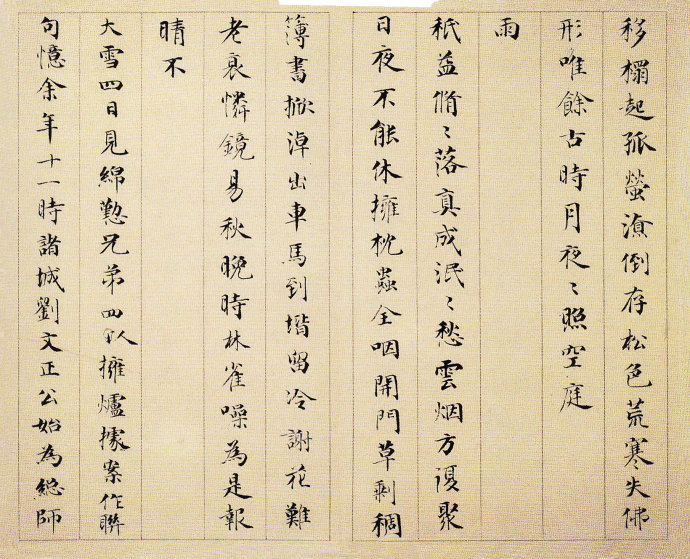 移榻起孤螢倒存松色荒寒失佛
形唯餘古時月夜〻照空庭
雨
秖益翛〻落真成泯〻愁雲烟方復聚
日夜不能休擁枕蟲全咽開門草剩稠
簿書掀淖出車馬到堦留冷謝花難
老衰憐鏡易秋晚時林雀噪為是報
晴不
大雪四日見綿懃兄弟四人擁爐據案作聯
句憶余年十一時諸城劉文正公始為總師